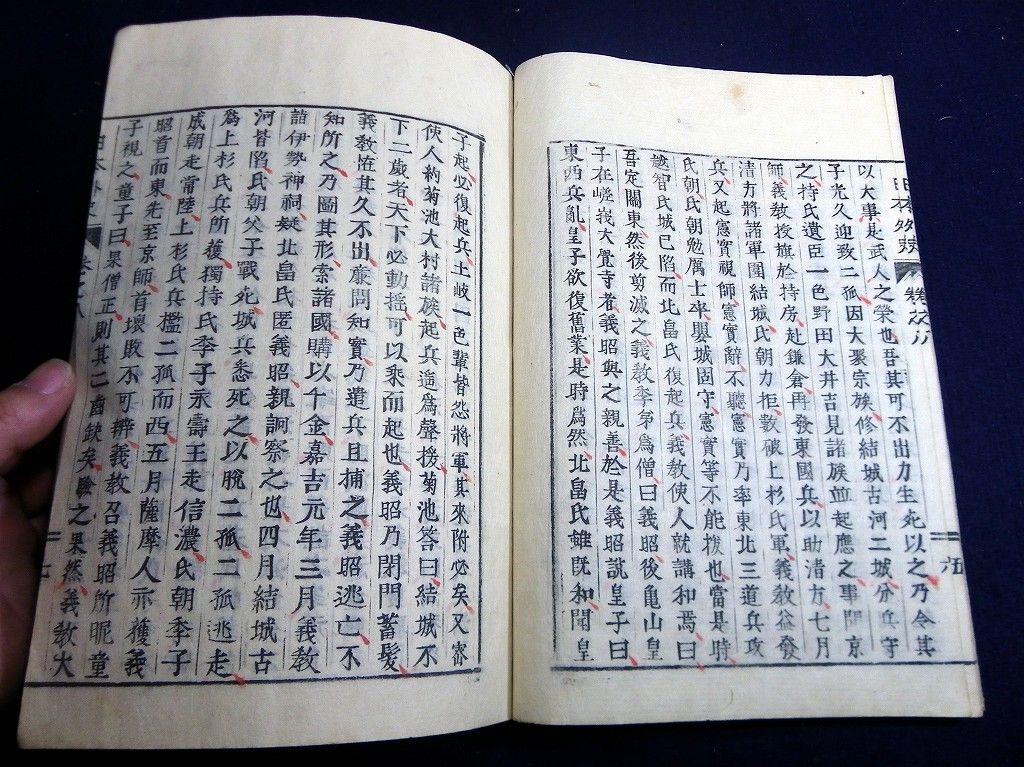 日本外史 卷之八 六
以大事是武人之榮也吾其可不出力生死以之乃令其
子光久迎致二孤因大聚宗族修結城古河二城分兵守
之持氏遺臣一色野田大井吉見諸族竝起應之事聞京
師義教授旗於持房赴鎌倉再發東國兵以助清方七月
清方將諸軍圍結城氏朝力拒數破上杉氏軍義教益發
兵又起憲實視師憲實辭不聽憲實乃率東北三道兵攻
氏朝氏朝勉厲士卒嬰城固守憲實等不能拔也當是時
越智氏城已陷而北畠氏復起兵義教使人就講和焉曰
吾定關東然後剪滅之義教季弟爲僧曰義昭後龜山皇
子在嵯峩大覺寺者義昭與之親善於是義昭說皇子曰
東西兵亂皇子欲復舊業是時爲然北畠氏雖旣和聞皇
子起必復起兵土岐一色輩皆怨將軍其來附必矣又密
使人約菊池大村諸族起兵遥爲聲援菊池答曰結城不
下二歲者天下必動搖可以乘而起也義昭乃閉門蓄髮
義教恠其久不出廉問知實乃遣兵且捕之義昭逃亡不
知所之乃圖其形索諸國購以千金嘉吉元年三月義教
詣伊勢神祠疑北畠氏匿義昭親詗察之也四月結城古
河皆陷氏朝父子戰死城兵悉死之以脫二孤二孤逃走
爲上杉氏兵所獲獨持氏季子永壽王走信濃氏朝季子
成朝走常陸上杉氏兵檻二孤而西五月薩摩人亦獲義
昭首而東先至京師首壞敗不可辨義教召義昭所昵童
子視之童子曰果僧正則其二齒缺矣驗之果然義教大
日本外史 卷之八 七